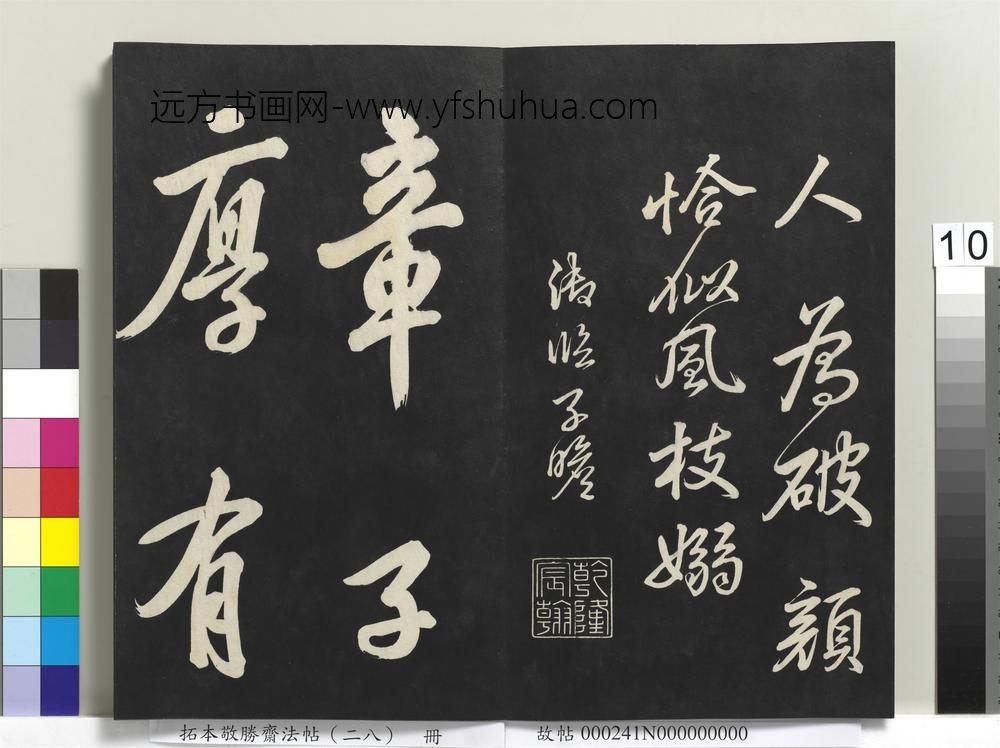 远方书画网-www.yfshuhua.com
人為破顏
恰似風枝嫋
御臨子瞻
乾隆
宸翰
章子
厚有
10
拓本敬勝齋法帖（二八） 冊
故帖000241N000000000